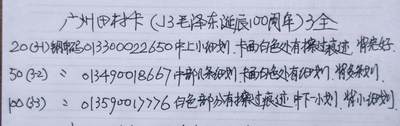 广州田村卡 (J3毛泽东诞辰100周年) 3全
20(3-1) 钢码013300022650 中上小细划. 卡面白色处有擦过痕迹. 背完好.
50(3-2) 〃 013490018667 中部几条细划. 卡面白色处有细划. 背多条划.
100(3-3) 〃 013590017776 白色部分有擦过痕迹. 中下一小划. 背小细划.